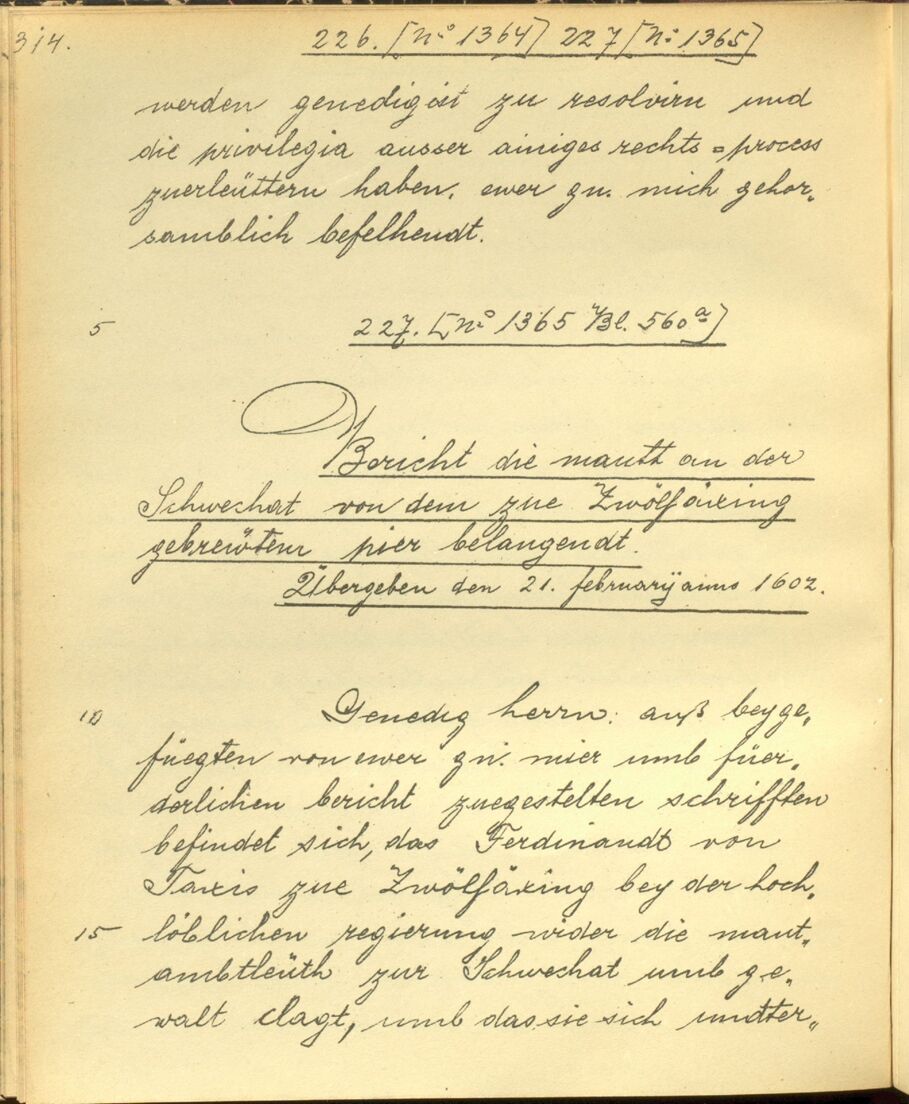 314.
226. [No 1364] 227 [No 1365]
werden genedigist zu resolvirn und
die privilegia ausser ainiges rechts=process
zuerleüttern haben, ewer gn. mich gehor„
samblich befelhendt.
5
227. [No 1365 Bl. 560a]
Bericht die mautt an der
Schwechat von dem zue Zwölfäxing
gebreẅtem pier belangendt.
Übergeben den 21. februarÿ anno 1602.
10
Genedig herrn: auß beyge„
füegten von ewer gn. mier umb füer„
derlichen bericht zuegestelten schrifften
befindet sich, das Ferdinandt von
Taxis zue Zwölfäxing bey der hoch„
15
löblichen regierung wider die maut„
ambtleüth zur Schwechat umb ge„
walt clagt, umb das sie sich undter„